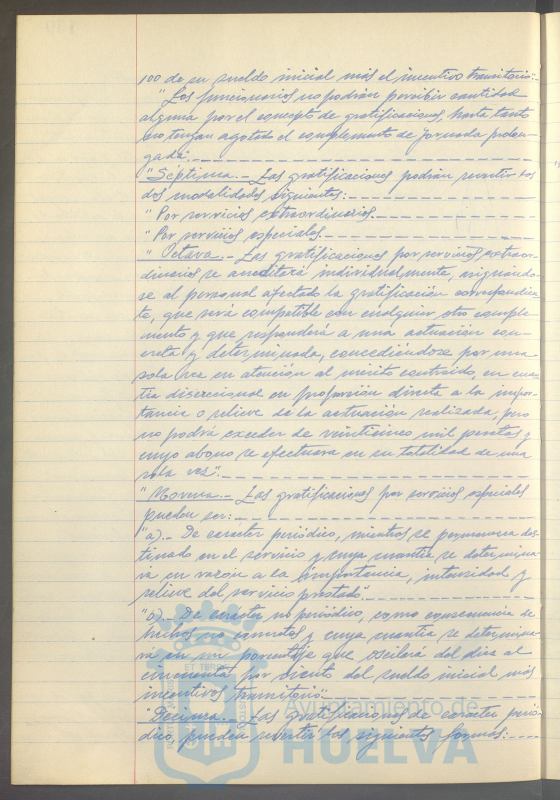 100 de su sueldo inicial más el incentivo transitorio".-
"Los funcionarios no podrán percibir cantidad
alguna por el concepto de gratificaciones, hasta tanto
no tengan agotado el complemento de jornada prolon-
gada".
"Séptima.- Las gratificaciones podrán revertir las
dos modalidades siguientes:
"Por servicios extraordinarios
"Por servicios especiales.
"Octava.- Las gratificaciones por servicios extraor-
dinarios se acreditará individualmente, asignándo-
se al personal afectado la gratificación correspondien-
te, que será compatible con cualquier otro comple-
mento y que responderá a una actuación con-
creta y determinada, concediéndose por una
sola vez en atención al mérito contraído, en cuan-
tía discreccional en proporción directa a la impor-
tancia o relieve de la actuación realizada, pero
no podrá exceder de veinticinco mil pesetas y
cuyo abono se efectuara en su totalidad de una
sola vez".
"Novena.- Las gratificaciones por servicios especiales
pueden ser:
"a).- De caracter periódico, mientras se permanezca des-
tinado en el servicio y cuya cuantía se determina-
rá en razón a la importancia, intensidad y
relieve del servicio prestado".
"b).- De caracter no periódico, como consecuencia de
hechos concretos y cuya cuantía se determina-
rá en un porcentaje que oscilará del diez al
cincuenta por ciento del sueldo inicial más
incentivos transitorio".
"Décima.- Las gratificaciones de caracter perió-
dico, pueden revertir las siguientes formas:
ET TERRE
Ayuntamiento de
HUELVA